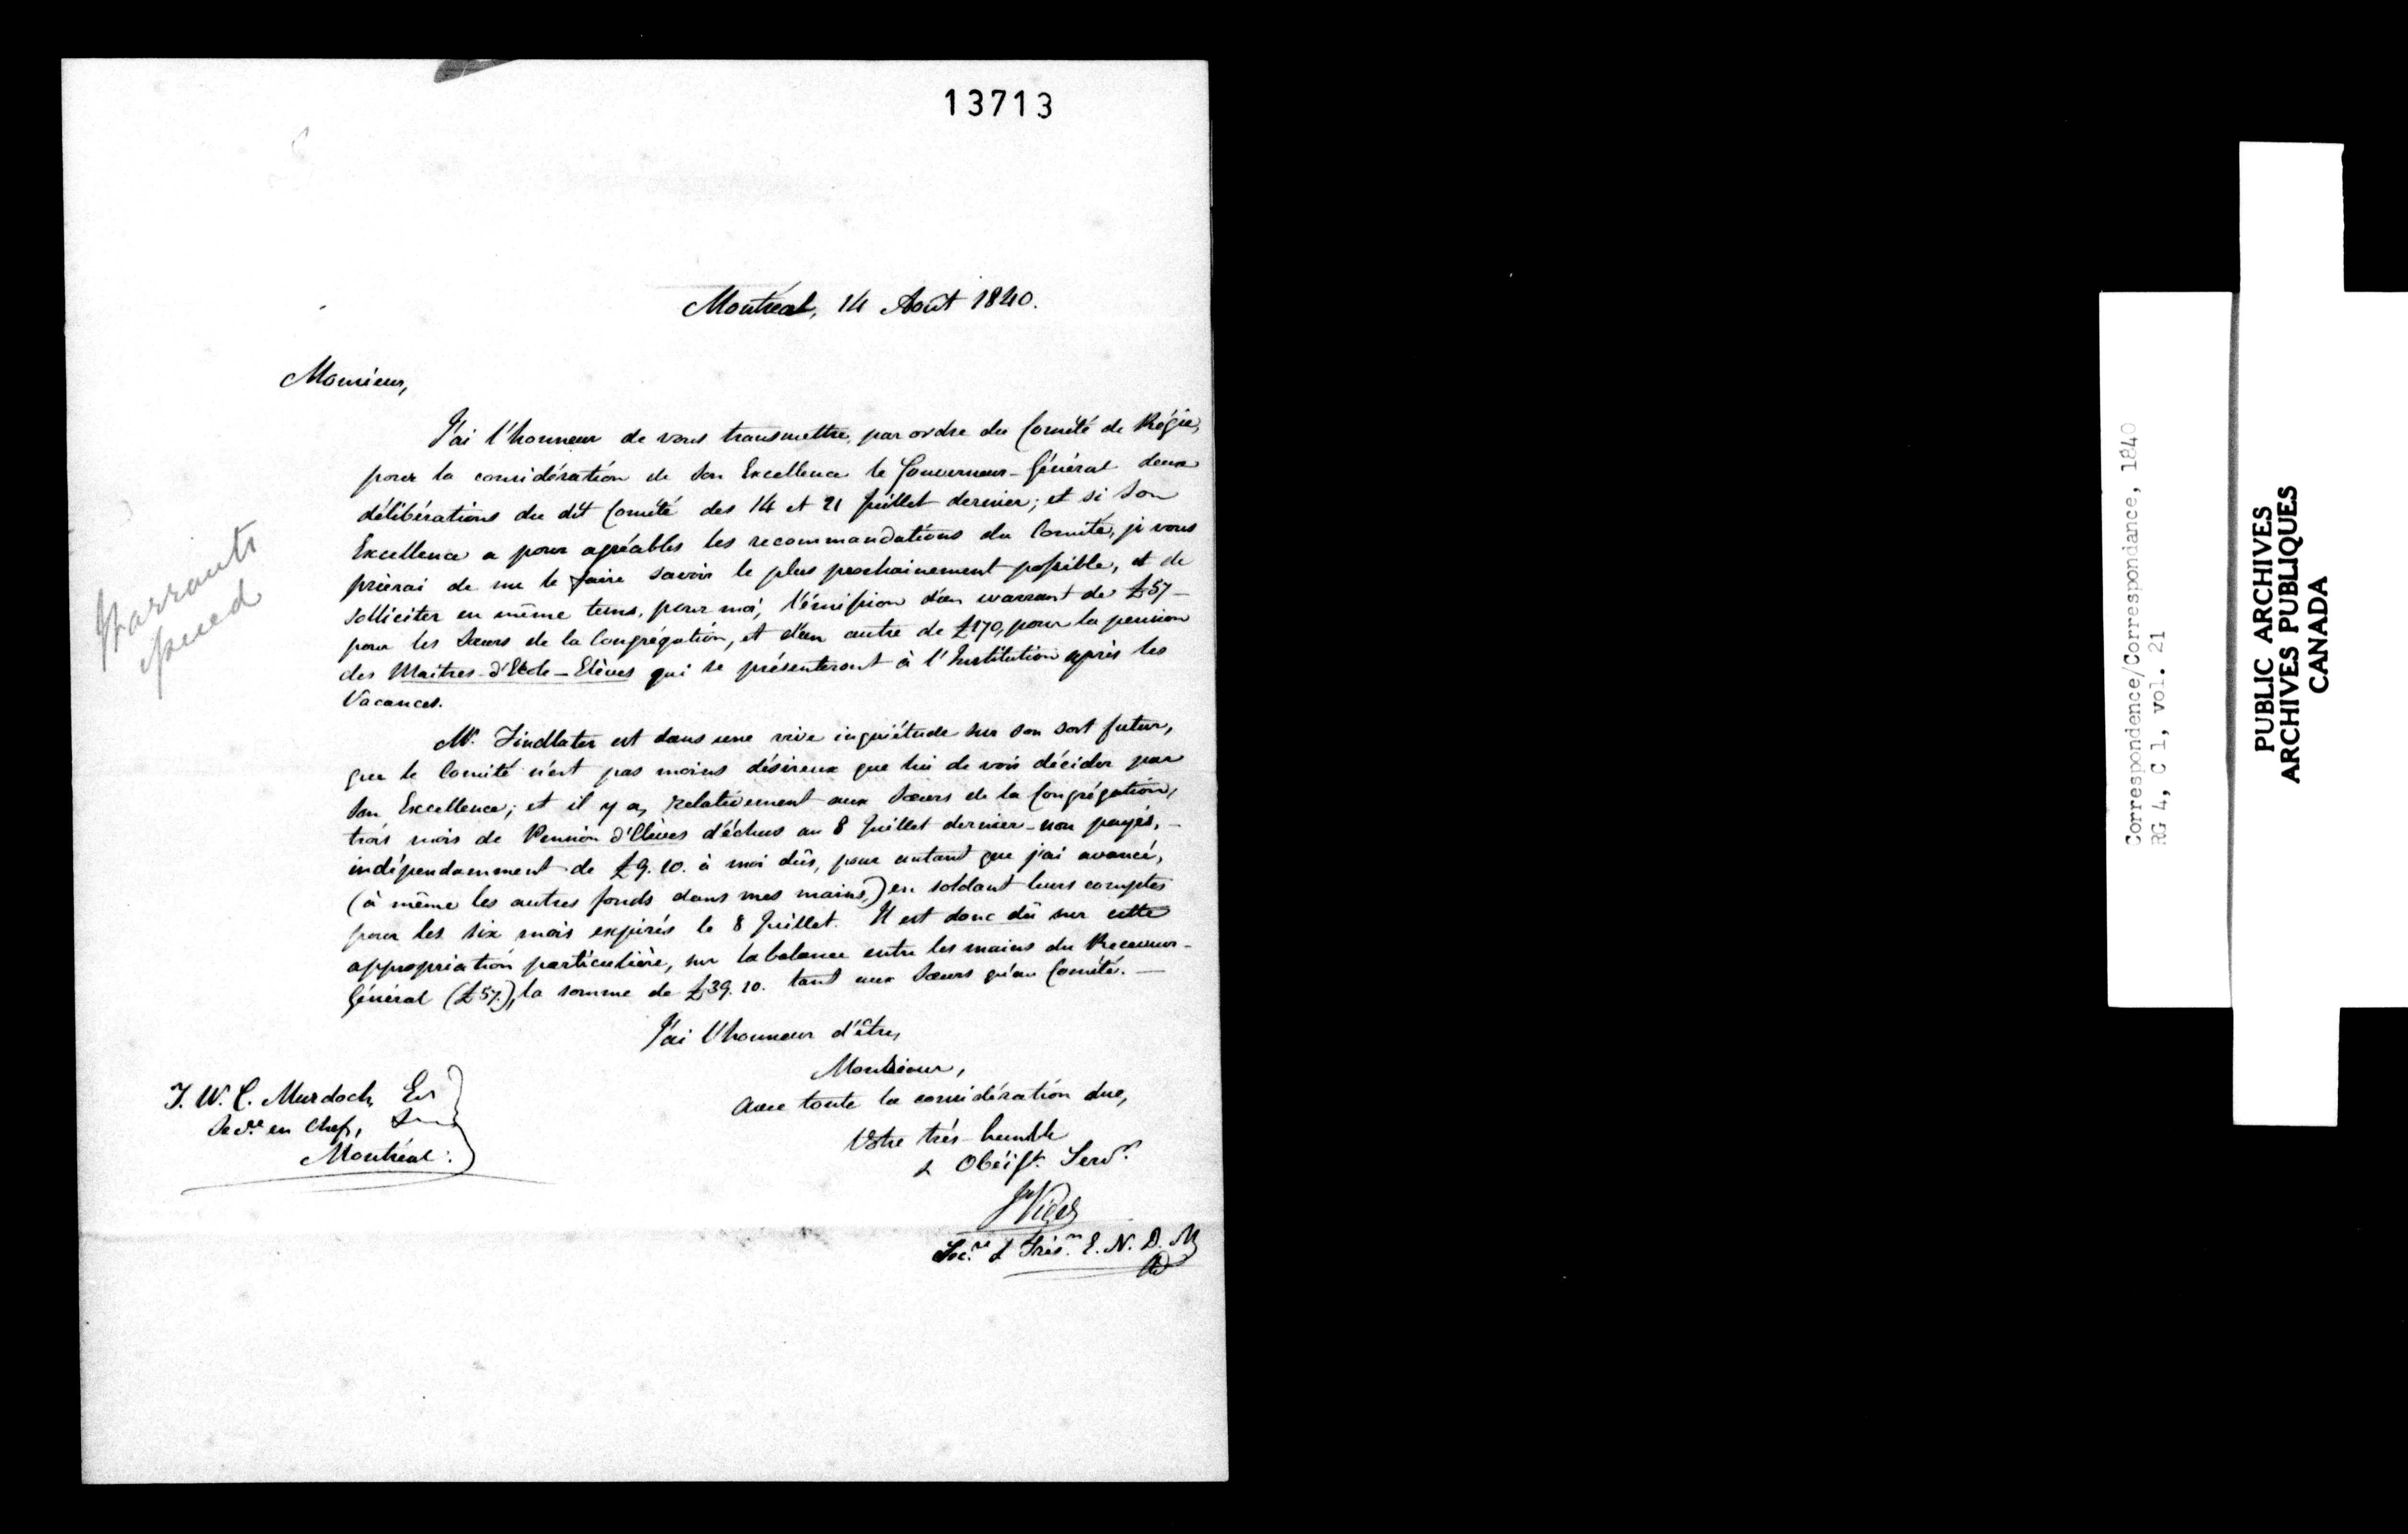 13713
Montréal, 14 Août 1840.
Monsieur,
J'ai l'honneur de vous transmettre, par ordre du Comité de Régie,
pour la considération de Son Excellence le Gouverneur-Général deux
délibérations du dit Comité des 14 et 21 Juillet dernier; et si Son
Excellence a pour agréables les recommandations du Comité, je vous
prierai de me le faire savoir le plus prochainement possible, et de
solliciter en même tems, pour moi, l'émission d'un warrant de £57 –
pour les Sœurs de la Congrégation, et d'un autre de £170, pour la pension
des Maîtres-d'Ecole-Elèves qui se présenteront à l'Institution après les
Vacances.
Warrants
issued
Mr. Findlater est dans une vive inquiétude sur son sort futur,
que le Comité n'est pas moins désireux que lui de voir décider par
Son Excellence; et il y a, relativement aux Sœurs de la Congrégation,
trois mois de Pension d'Elèves d'échus au 8 Juillet dernier – non payés, –
indépendamment de £9.10. à moi dûs, pour autant que j'ai avancé,
(à même les autres fonds dans mes mains,) en soldant leurs comptes
pour les six mois expirés le 8 Juillet. Il est donc dû sur cette
appropriation particulière, sur la balance entre les mains du Receveur-
Général (£57.), la somme de £39.10. tant aux Sœurs qu'au Comité. —
J'ai l'honneur d'être,
Monsieur,
avec toute la considération due,
Votre très-humble
& Obéisst. Servr.
J Viger
Secre. & Trésr. E. N. D. M
T. W. C. Murdoch, Er
Secre. en Chef,
Montréal.
Correspondence/Correspondance, 1840
RG 4, C 1, vol. 21
PUBLIC ARCHIVES
ARCHIVES PUBLIQUES
CANADA